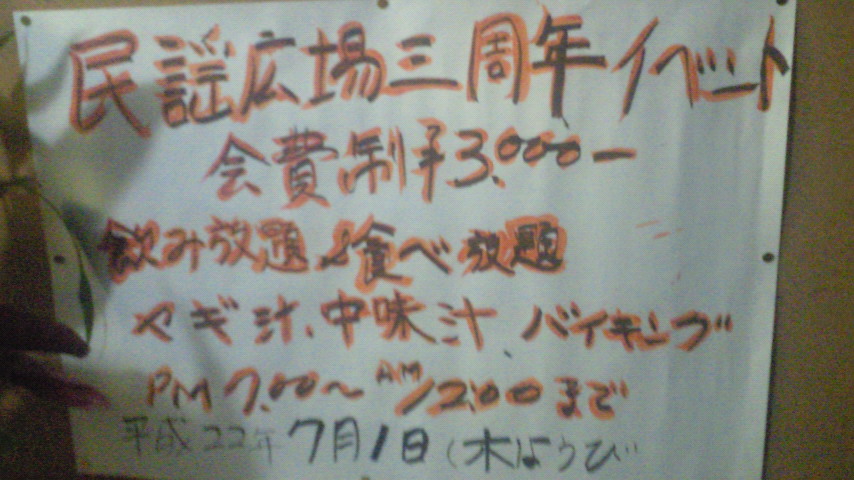 民謡広場三周年イベント
会費制¥3.000ー
飲み放題&食べ放題
ヤギ汁、中味汁、バイキング
PM7.00〜AM12.00まで
平成22年7月1日(木ようび